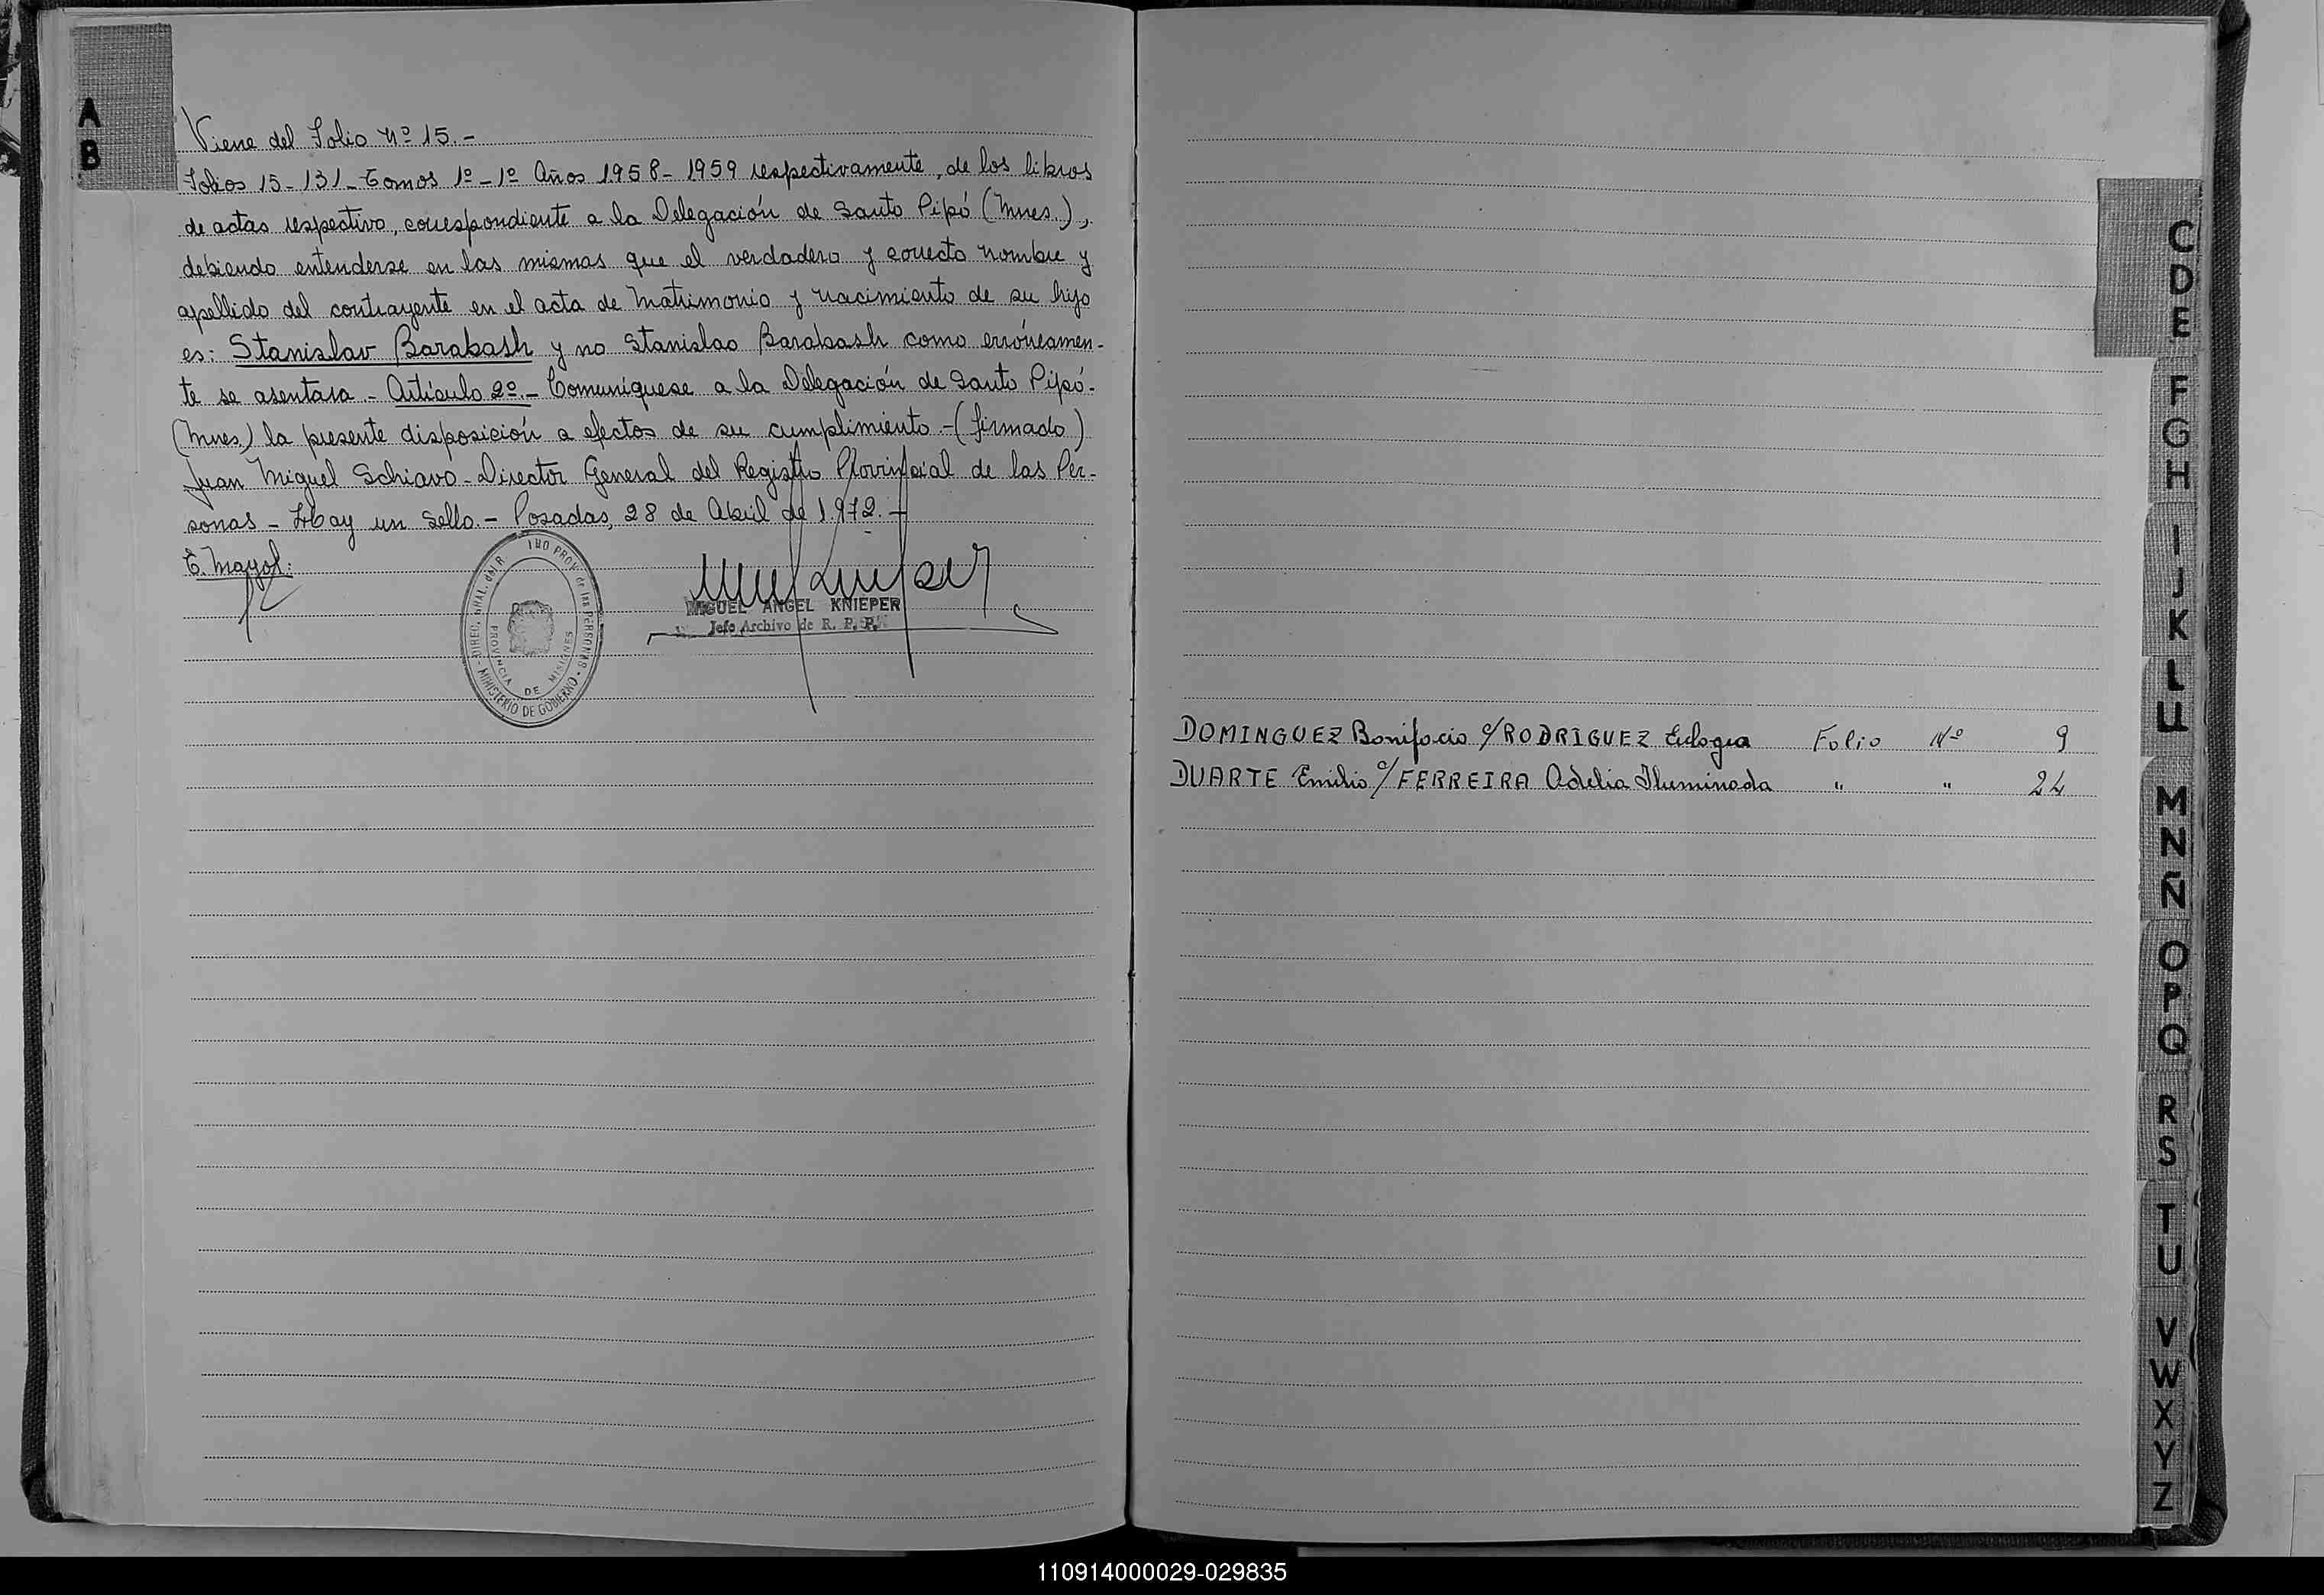 A
B
Viene del Folio Nº 15.-
Folios 15-131- Tomos 1º-1º Años 1958-1959 respectivamente, de los libros
de actas respectivo, correspondiente a la Delegación de Santo Pipó (Mnes.),
debiendo entenderse en las mismas que el verdadero y correcto nombre y
apellido del contrayente en el acta de Matrimonio y nacimiento de su hijo
es: Stanislav Barabash y no Stanislao Barabash como erróneamen-
te se asentara.- Artículo 2º.- Comuníquese a la Delegación de Santo Pipó-
(Mnes.) la presente disposición a efectos de su cumplimiento.-(firmado)
Juan Miguel Schiavo-Director General del Registro Provincial de las Per-
sonas - Hay un sello.- Posadas, 28 de Abril de 1.972.-
E. Mayol:
MIGUEL ANGEL KNIEPER
Jefe Archivo de R. P. P.
PROVINCIA DE MISIONES
MINISTERIO DE GOBIERNO
DOMINGUEZ Bonifacio c/RODRIGUEZ Eulogia Folio Nº 9
DUARTE Emilio c/FERREIRA Adelia Iluminada " " 24
C
D
E
F
G
H
I
J
K
L
LL
M
N
Ñ
O
P
Q
R
S
T
U
V
W
X
Y
Z
110914000029-029835